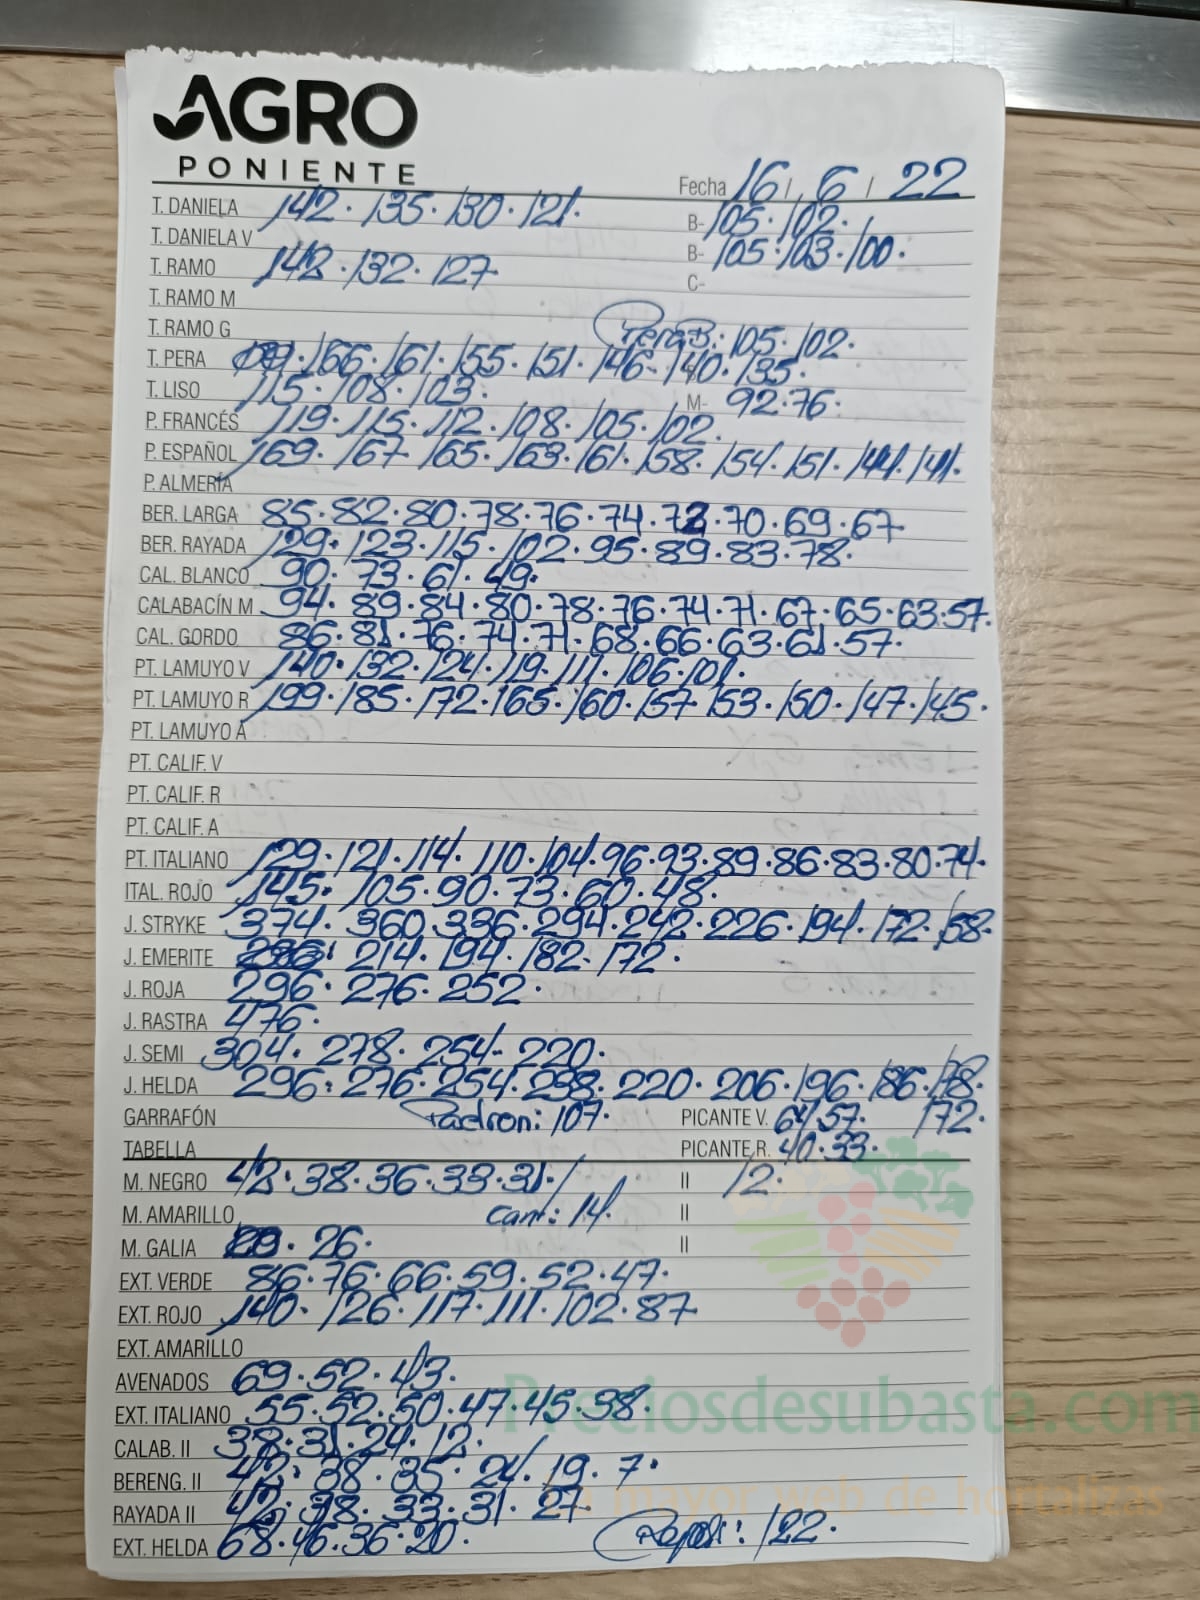 AGRO
PONIENTE
Fecha 16 / 6 / 22
T. DANIELA 142. 135. 130. 121. B- 105. 102.
T. DANIELA V B- 105. 103. 100.
T. RAMO 142. 132. 127 C-
T. RAMO M
T. RAMO G Pera B: 105. 102.
T. PERA 166. 161. 155. 151. 146. 140. 135.
T. LISO 115. 108. 103. M- 92. 76.
P. FRANCÉS 119. 115. 112. 108. 105. 102.
P. ESPAÑOL 169. 167 165. 163. 161. 158. 154. 151. 144. 141.
P. ALMERÍA
BER. LARGA 85. 82. 80. 78. 76. 74. 72. 70. 69. 67
BER. RAYADA 129. 123. 115. 102. 95. 89. 83. 78.
CAL. BLANCO 90. 73. 61. 49.
CALABACÍN M 94. 89. 84. 80. 78. 76. 74. 71. 67. 65. 63. 57.
CAL. GORDO 86. 81. 76. 74. 71. 68. 66. 63. 61. 57.
PT. LAMUYO V 140. 132. 124. 119. 111. 106. 101.
PT. LAMUYO R 199. 185. 172. 165. 160. 157 153. 150. 147. 145.
PT. LAMUYO A
PT. CALIF. V
PT. CALIF. R
PT. CALIF. A
PT. ITALIANO 129. 121. 114. 110. 104. 96. 93. 89. 86. 83. 80. 74.
ITAL. ROJO 145. 105. 90. 73. 60. 48.
J. STRYKE 374. 360. 336. 294. 242. 226. 194. 172. 158.
J. EMERITE 214. 194. 182. 172.
J. ROJA 296. 276. 252.
J. RASTRA 476.
J. SEMI 304. 278. 254. 220.
J. HELDA 296. 276. 254. 238. 220. 206. 196. 186. 178.
GARRAFÓN Padron: 107. PICANTE V. 64. 57. 172.
TABELLA PICANTE R. 40. 33.
M. NEGRO 42. 38. 36. 33. 31. / II 12.
M. AMARILLO Cant: 14. II
M. GALIA 26. II
EXT. VERDE 86. 76. 66. 59. 52. 47.
EXT. ROJO 140. 126. 117. 111. 102. 87
EXT. AMARILLO
AVENADOS 69. 52. 43.
EXT. ITALIANO 55. 52. 50. 47. 45. 38.
CALAB. II 38. 31. 24. 12.
BERENG. II 42. 38. 35. 24. 19. 7.
RAYADA II 42. 38. 33. 31. 27
EXT. HELDA 68. 46. 36. 20. 122.
Preciosdesubasta.com
mayor web de hortalizas